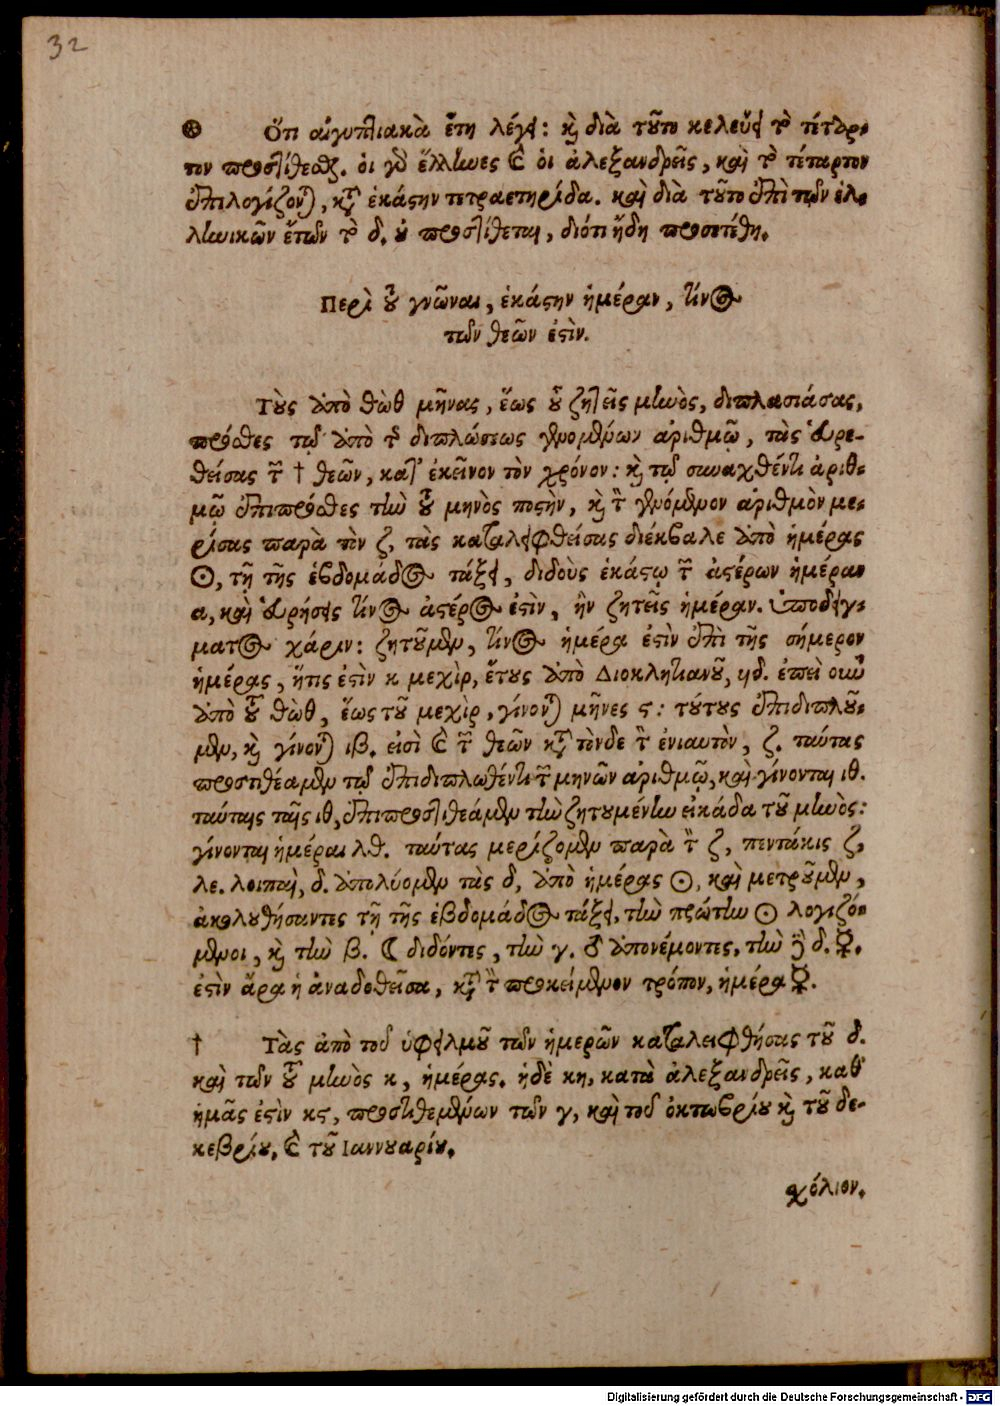 32
⊛ Ὅτι αἰγυπτιακὰ ἔτη λέγει: καὶ διὰ τοῦτο κελεύει τὸ τέταρ-
τον προστίθεσθαι. οἱ γὰρ ἕλληνες καὶ οἱ ἀλεξανδρεῖς, καὶ τὸ τέταρτον
ἐπιλογίζονται, κατὰ ἑκάστην τετραετηρίδα. καὶ διὰ τοῦτο ἐπὶ τῶν ἑλ-
ληνικῶν ἐτῶν τὸ δ. οὐ προστίθεται, διότι ἤδη προσετέθη.
Περὶ τοῦ γνῶναι, ἑκάστην ἡμέραν, τίνος
τῶν θεῶν ἐστὶν.
Τοὺς ἀπὸ θὼθ μῆνας, ἕως οὗ ζητεῖς μηνὸς, διπλασιάσας,
πρόσθες τῷ ἀπὸ τῆς διπλώσεως γενομένων ἀριθμῷ, τὰς εὑρε-
θείσας τῶν † θεῶν, κατ' ἐκεῖνον τὸν χρόνον: καὶ τῷ συναχθέντι ἀριθ-
μῷ ἐπιπρόσθες τὴν τοῦ μηνὸς ποστὴν, καὶ τὸν γενόμενον ἀριθμὸν με-
ρίσας παρὰ τὸν ζ, τὰς καταλειφθείσας διέκβαλε ἀπὸ ἡμέρας
☉, τῇ τῆς ἑβδομάδος τάξει, διδοὺς ἑκάστῳ τῶν ἀστέρων ἡμέραν
α, καὶ εὑρήσεις τίνος ἀστέρος ἐστὶν, ἣν ζητεῖς ἡμέραν. ὑποδείγ-
ματος χάριν: ζητοῦμεν, τίνος ἡμέρα ἐστὶν ἐπὶ τῆς σήμερον
ἡμέρας, ἥτις ἐστὶν κ μεχὶρ, ἔτους ἀπὸ Διοκλητιανοῦ, ϟδ. ἐπεὶ οὖν
ἀπὸ τοῦ θὼθ, ἕως τοῦ μεχὶρ, γίνονται μῆνες ϛ: τούτους ἐπιδιπλοῦ-
μεν, καὶ γίνονται ιβ. εἰσὶ καὶ τῶν θεῶν κατὰ τόνδε τὸν ἐνιαυτὸν, ζ. ταύτας
προστιθέαμεν τῷ ἐπιδιπλωθέντι τῶν μηνῶν ἀριθμῷ, καὶ γίνονται ιθ.
ταύταις ταῖς ιθ, ἐπιπροστιθέαμεν τὴν ζητουμένην εἰκάδα τοῦ μηνὸς:
γίνονται ἡμέραι λθ. ταύτας μερίζομεν παρὰ τὸν ζ, πεντάκις ζ,
λε. λοιπαὶ, δ. ἀπολύομεν τὰς δ, ἀπὸ ἡμέρας ☉, καὶ μετροῦμεν,
ἀκολουθήσαντες τῇ τῆς ἑβδομάδος τάξει, τὴν πρώτην ☉ λογιζό-
μενοι, καὶ τὴν β. ☾ διδόντες, τὴν γ. ♂ ἀπονέμοντες, τὴν δὲ δ. ☿.
ἐστὶν ἄρα ἡ ἀναδοθεῖσα, κατὰ τὸν προκείμενον τρόπον, ἡμέρα ☿.
† Τὰς ἀπὸ τοῦ ὑφειλμοῦ τῶν ἡμερῶν καταλειφθήσας τοῦ δ.
καὶ τῶν τοῦ μηνὸς κ, ἡμέρας. ἡδὲ κη, κατὰ ἀλεξανδρεῖς, καθ'
ἡμᾶς ἐστὶν κϛ, προστιθεμένων τῶν γ, καὶ τοῦ ὀκτωβρίου καὶ τοῦ δε-
κεβρίου, καὶ τοῦ Ιαννουαρίου.
χόλιον.
Digitalisierung gefördert durch die Deutsche Forschungsgemeinschaft - DFG